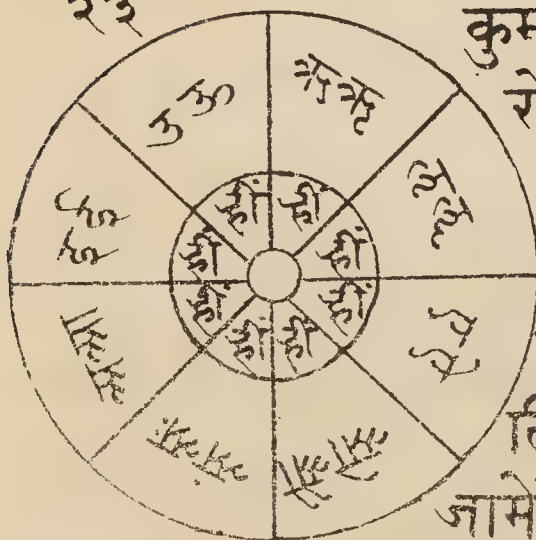 २३
कुम
उ ऊ
ऋ ॠ
लृ लॄ
ए ऐ
ओ औ
अं अः
अ आ
इ ई
ह्रीं ह्रीं
ह्रीं ह्रीं
ह्रीं ह्रीं
ह्रीं ह्रीं
जामे